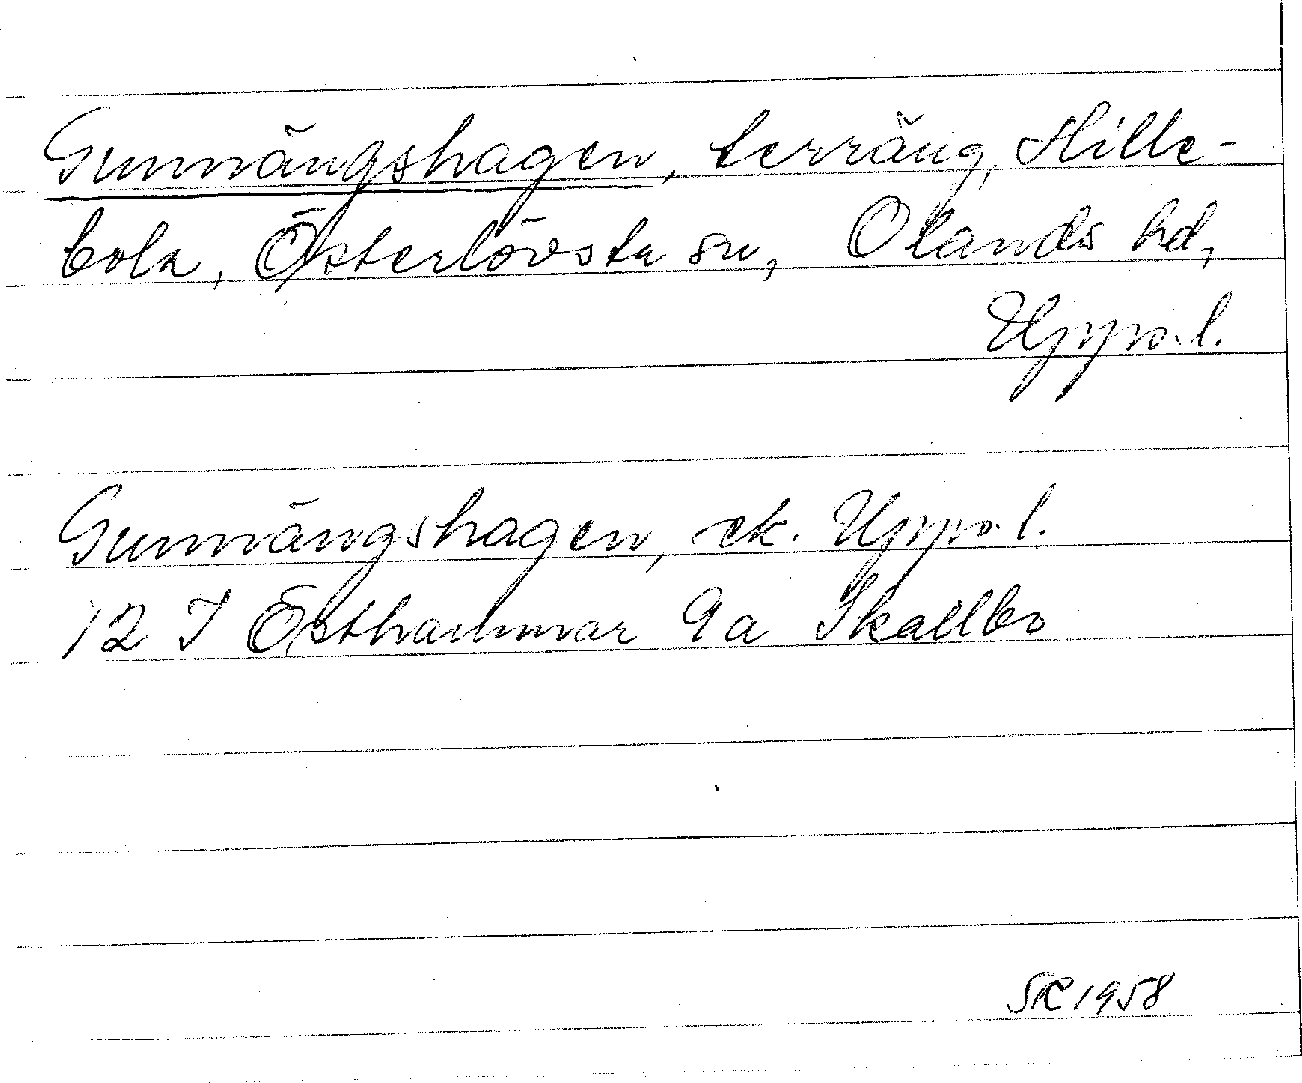 Gunnängshagen, terräng, Hille-
bola, Österlövsta sn, Olands hd,
Upps. l.
Gunnängshagen, ek. Upps. l.
12 I Östhammar 9a Skallbo
SR 1958